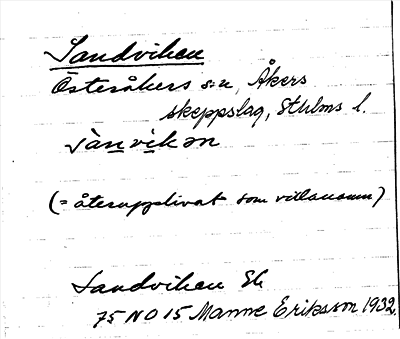 Sandviken
Österåkers sn, Åkers
skeppslag, Sthlms l.
sànvikən
(= återupplivat som villanamn)
Sandviken Ek
75 NO 15 Manne Eriksson 1932.